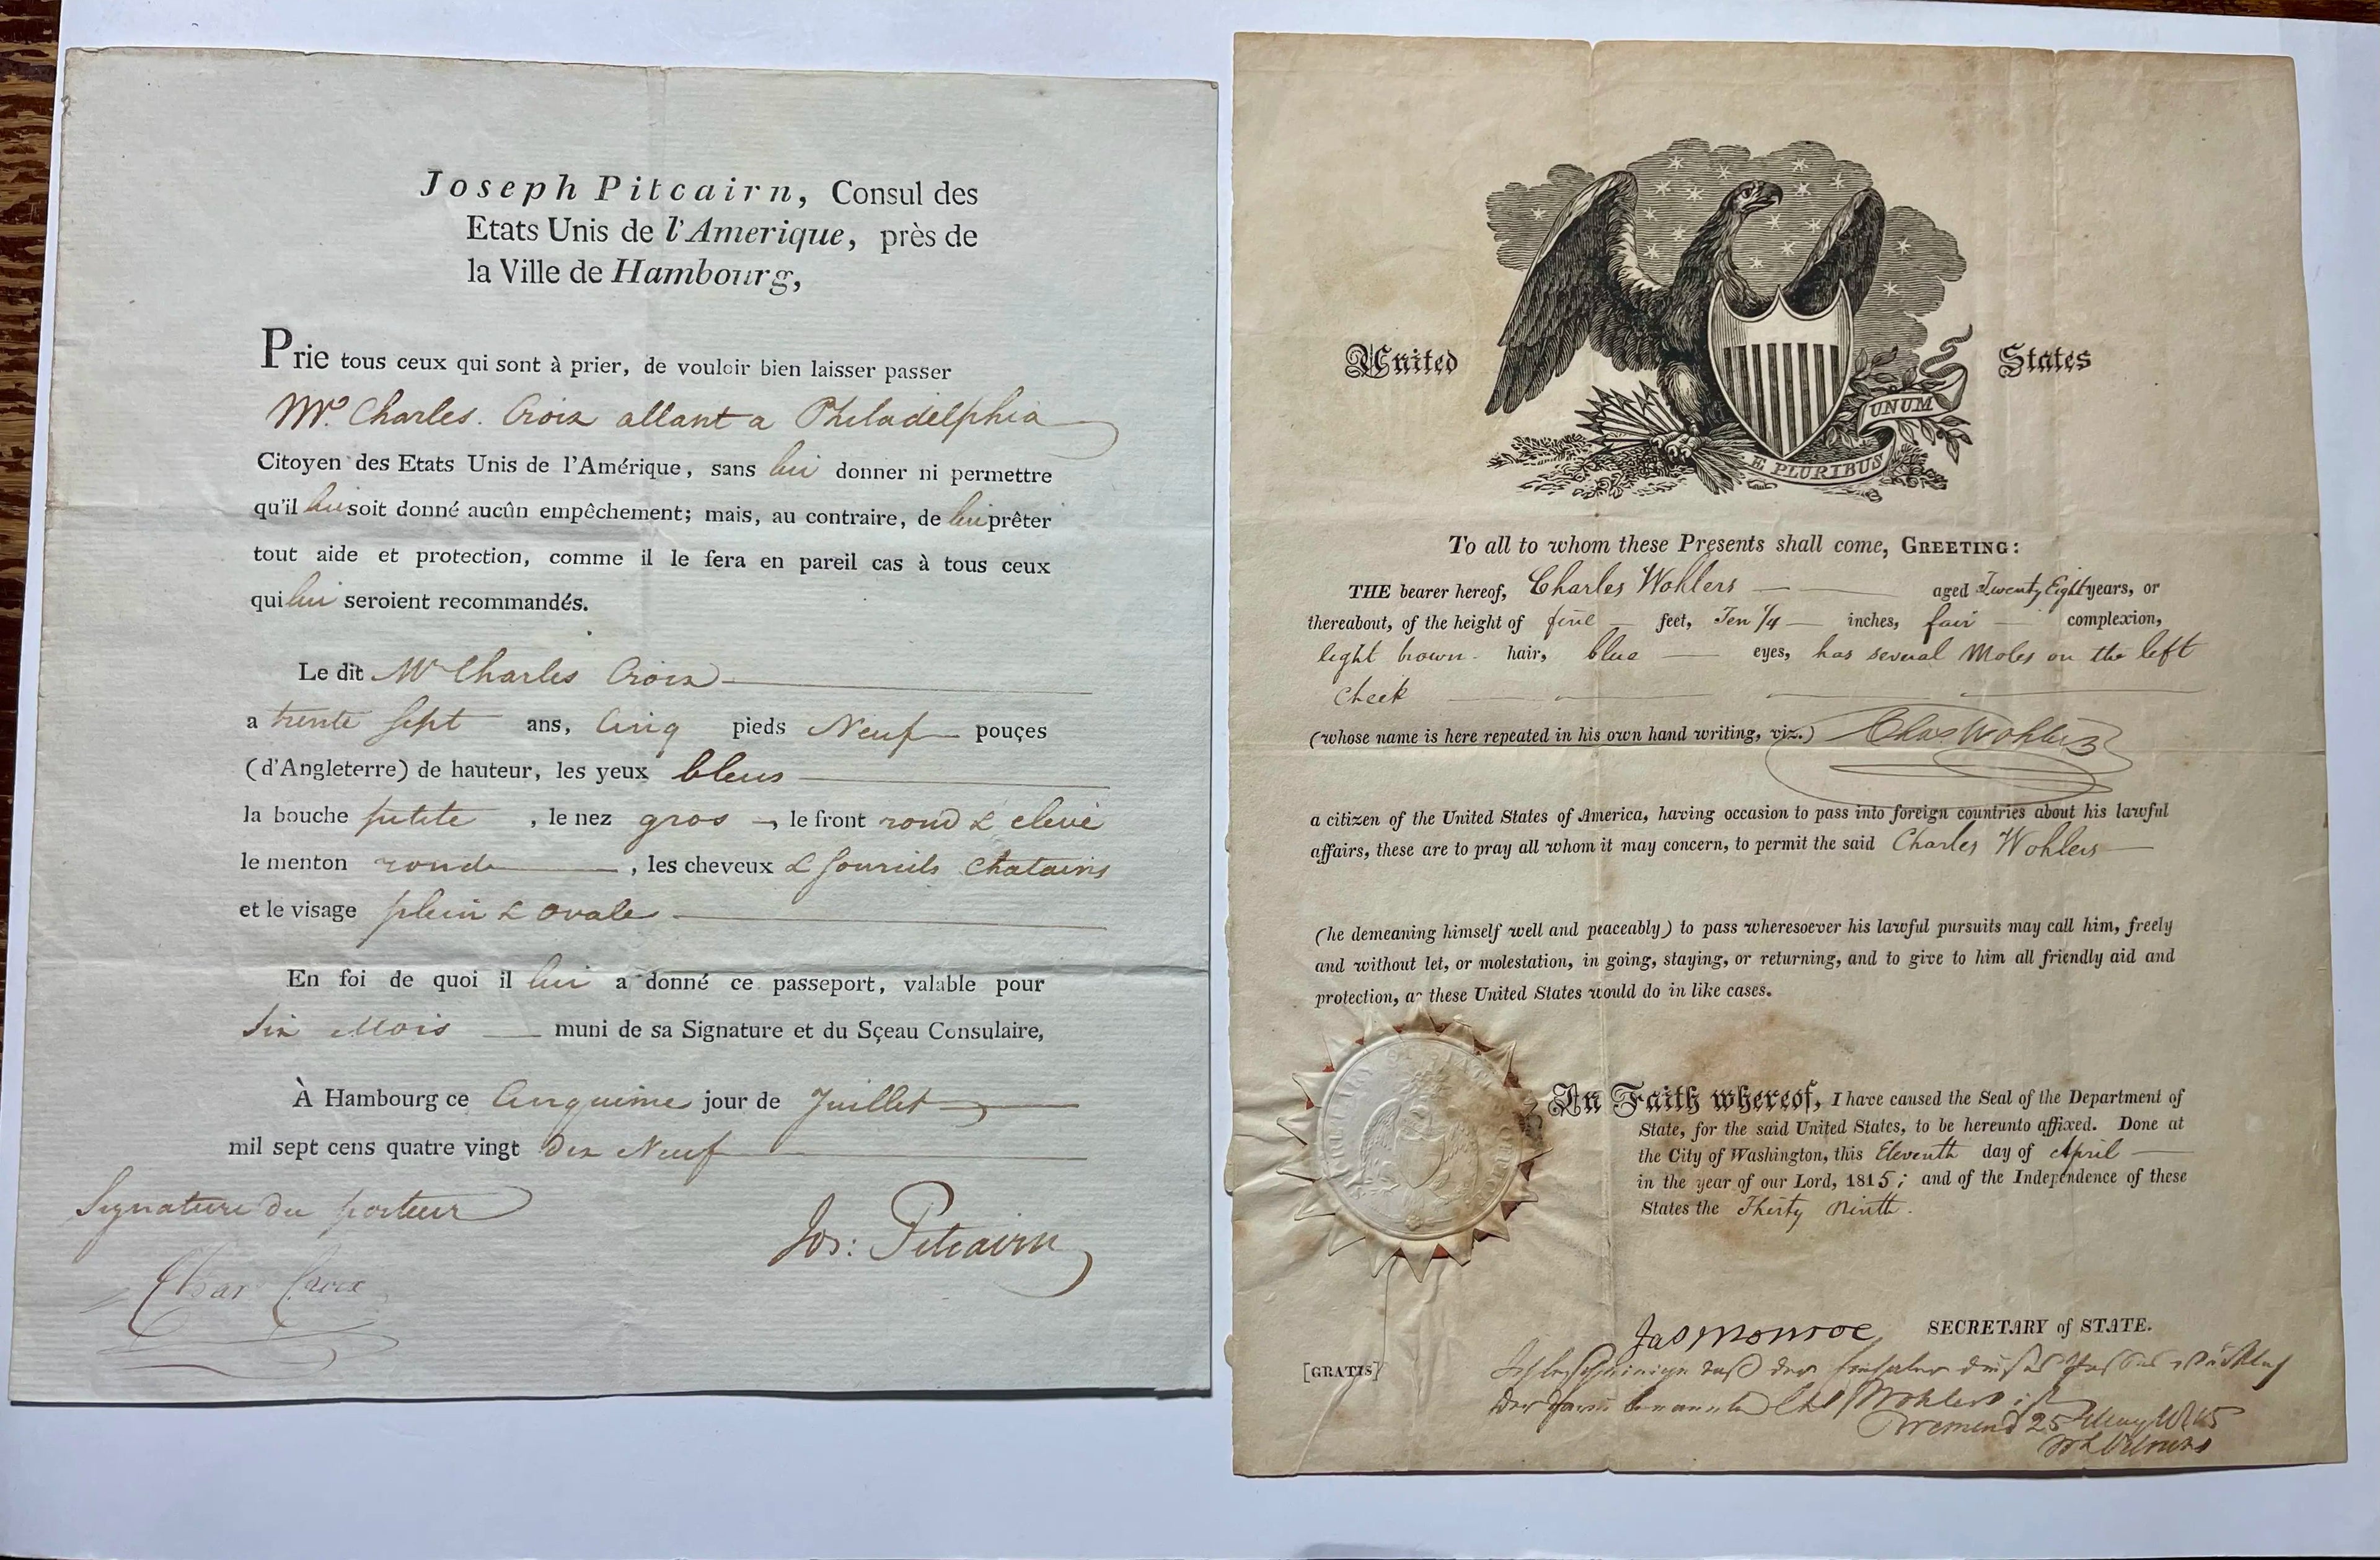 Joseph Pitcairn, Consul des
Etats Unis de l'Amerique, près de
la Ville de Hambourg,
Prie tous ceux qui sont à prier, de vouloir bien laisser passer
Mr. Charles. Croix allant a Philadelphia
Citoyen des Etats Unis de l'Amérique, sans lui donner ni permettre
qu'il lui soit donné aucûn empêchement; mais, au contraire, de lui prêter
tout aide et protection, comme il le fera en pareil cas à tous ceux
qui lui seroient recommandés.
Le dit Mr Charles Croix
a trente sept ans, Cinq pieds Neuf pouçes
(d'Angleterre) de hauteur, les yeux bleus
la bouche petite, le nez gros, le front rond & elevé
le menton rond, les cheveux & sourcils Chatains
et le visage plein & ovale
En foi de quoi il lui a donné ce passeport, valable pour
Six Mois muni de sa Signature et du Sçeau Consulaire,
À Hambourg ce Cinquieme jour de Juillet
mil sept cens quatre vingt dix Neuf
Signature du porteur
Jos: Pitcairn
Char Croix
United States
E PLURIBUS UNUM
To all to whom these Presents shall come, GREETING:
THE bearer hereof, Charles Wohlers aged Twenty Eight years, or
thereabout, of the height of five feet, Ten 1/4 inches, fair complexion,
light brown hair, blue eyes, has several Moles on the left
Cheek
(whose name is here repeated in his own hand writing, viz.) Chas Wohlers
a citizen of the United States of America, having occasion to pass into foreign countries about his lawful
affairs, these are to pray all whom it may concern, to permit the said Charles Wohlers
(he demeaning himself well and peaceably) to pass wheresoever his lawful pursuits may call him, freely
and without let, or molestation, in going, staying, or returning, and to give to him all friendly aid and
protection, as these United States would do in like cases.
In Faith whereof, I have caused the Seal of the Department of
State, for the said United States, to be hereunto affixed. Done at
the City of Washington, this Eleventh day of April
in the year of our Lord, 1815; and of the Independence of these
States the Thirty Ninth.
Jas Monroe, SECRETARY of STATE.
[GRATIS]
daß der
Wohlers ist
25 May 1815